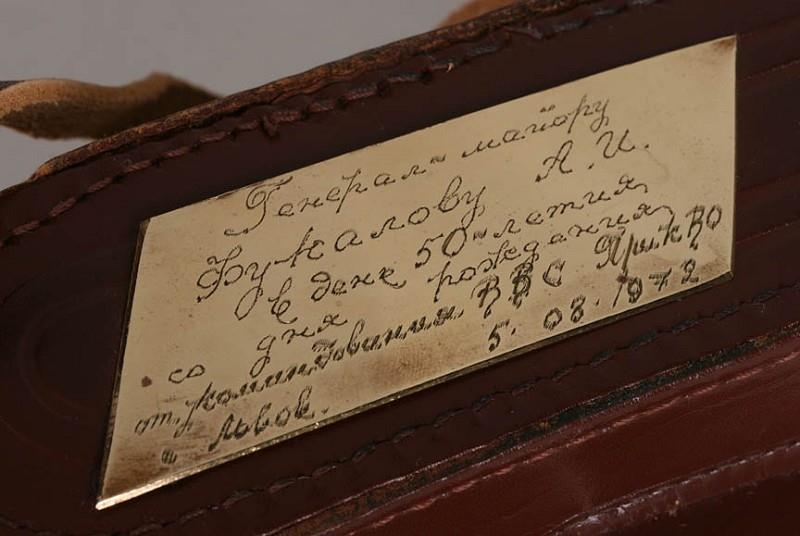 Генерал-майору
А. И.
в день 50-летия
со дня рождения
от командования ВВС ПрикВО
г. Львов. 5. 08. 1972